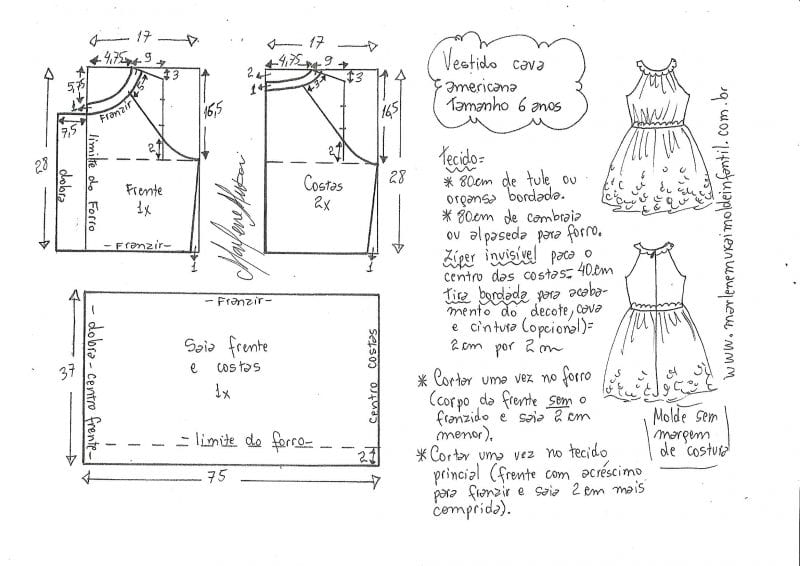 17
4,75
9
3
5,75
1
5
Franzir
16,5
7,5
28
dobra
limite do Forro
2
Frente
1x
- Franzir -
1
Marlene Mukai
17
4,75
9
2
3
1
5
16,5
2
28
Costas
2x
1
- Franzir -
37
- dobra - centro frente -
Saia frente
e costas
1x
centro costas
- limite do forro -
2
75
Vestido cava
americana
Tamanho 6 anos
Tecido=
* 80cm de tule ou
organsa bordada.
* 80cm de cambraia
ou alpaseda para forro.
Zíper invisível para o
centro das costas= 40cm
Tira bordada para acaba-
mento do decote, cava
e cintura (opcional)=
2cm por 2m
* Cortar uma vez no forro
(corpo da frente sem o
franzido e saia 2cm
menor).
* Cortar uma vez no tecido
princial (frente com acréscimo
para franzir e saia 2cm mais
comprida).
www.marlenemukaimoldeinfantil.com.br
Molde sem
margem
de costura